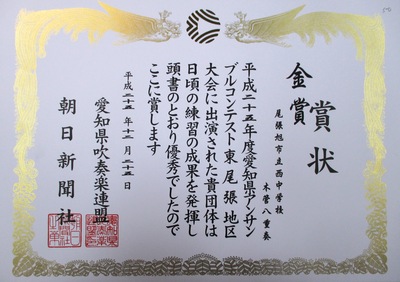 賞状
尾張旭市立西中学校
木管八重奏
金賞
平成二十五年度愛知県アンサン
ブルコンテスト東尾張地区
大会に出演された貴団体は
日頃の練習の成果を発揮し
頭書のとおり優秀でしたので
ここに賞します
平成二十五年十二月二十五日
愛知県吹奏楽連盟
朝日新聞社